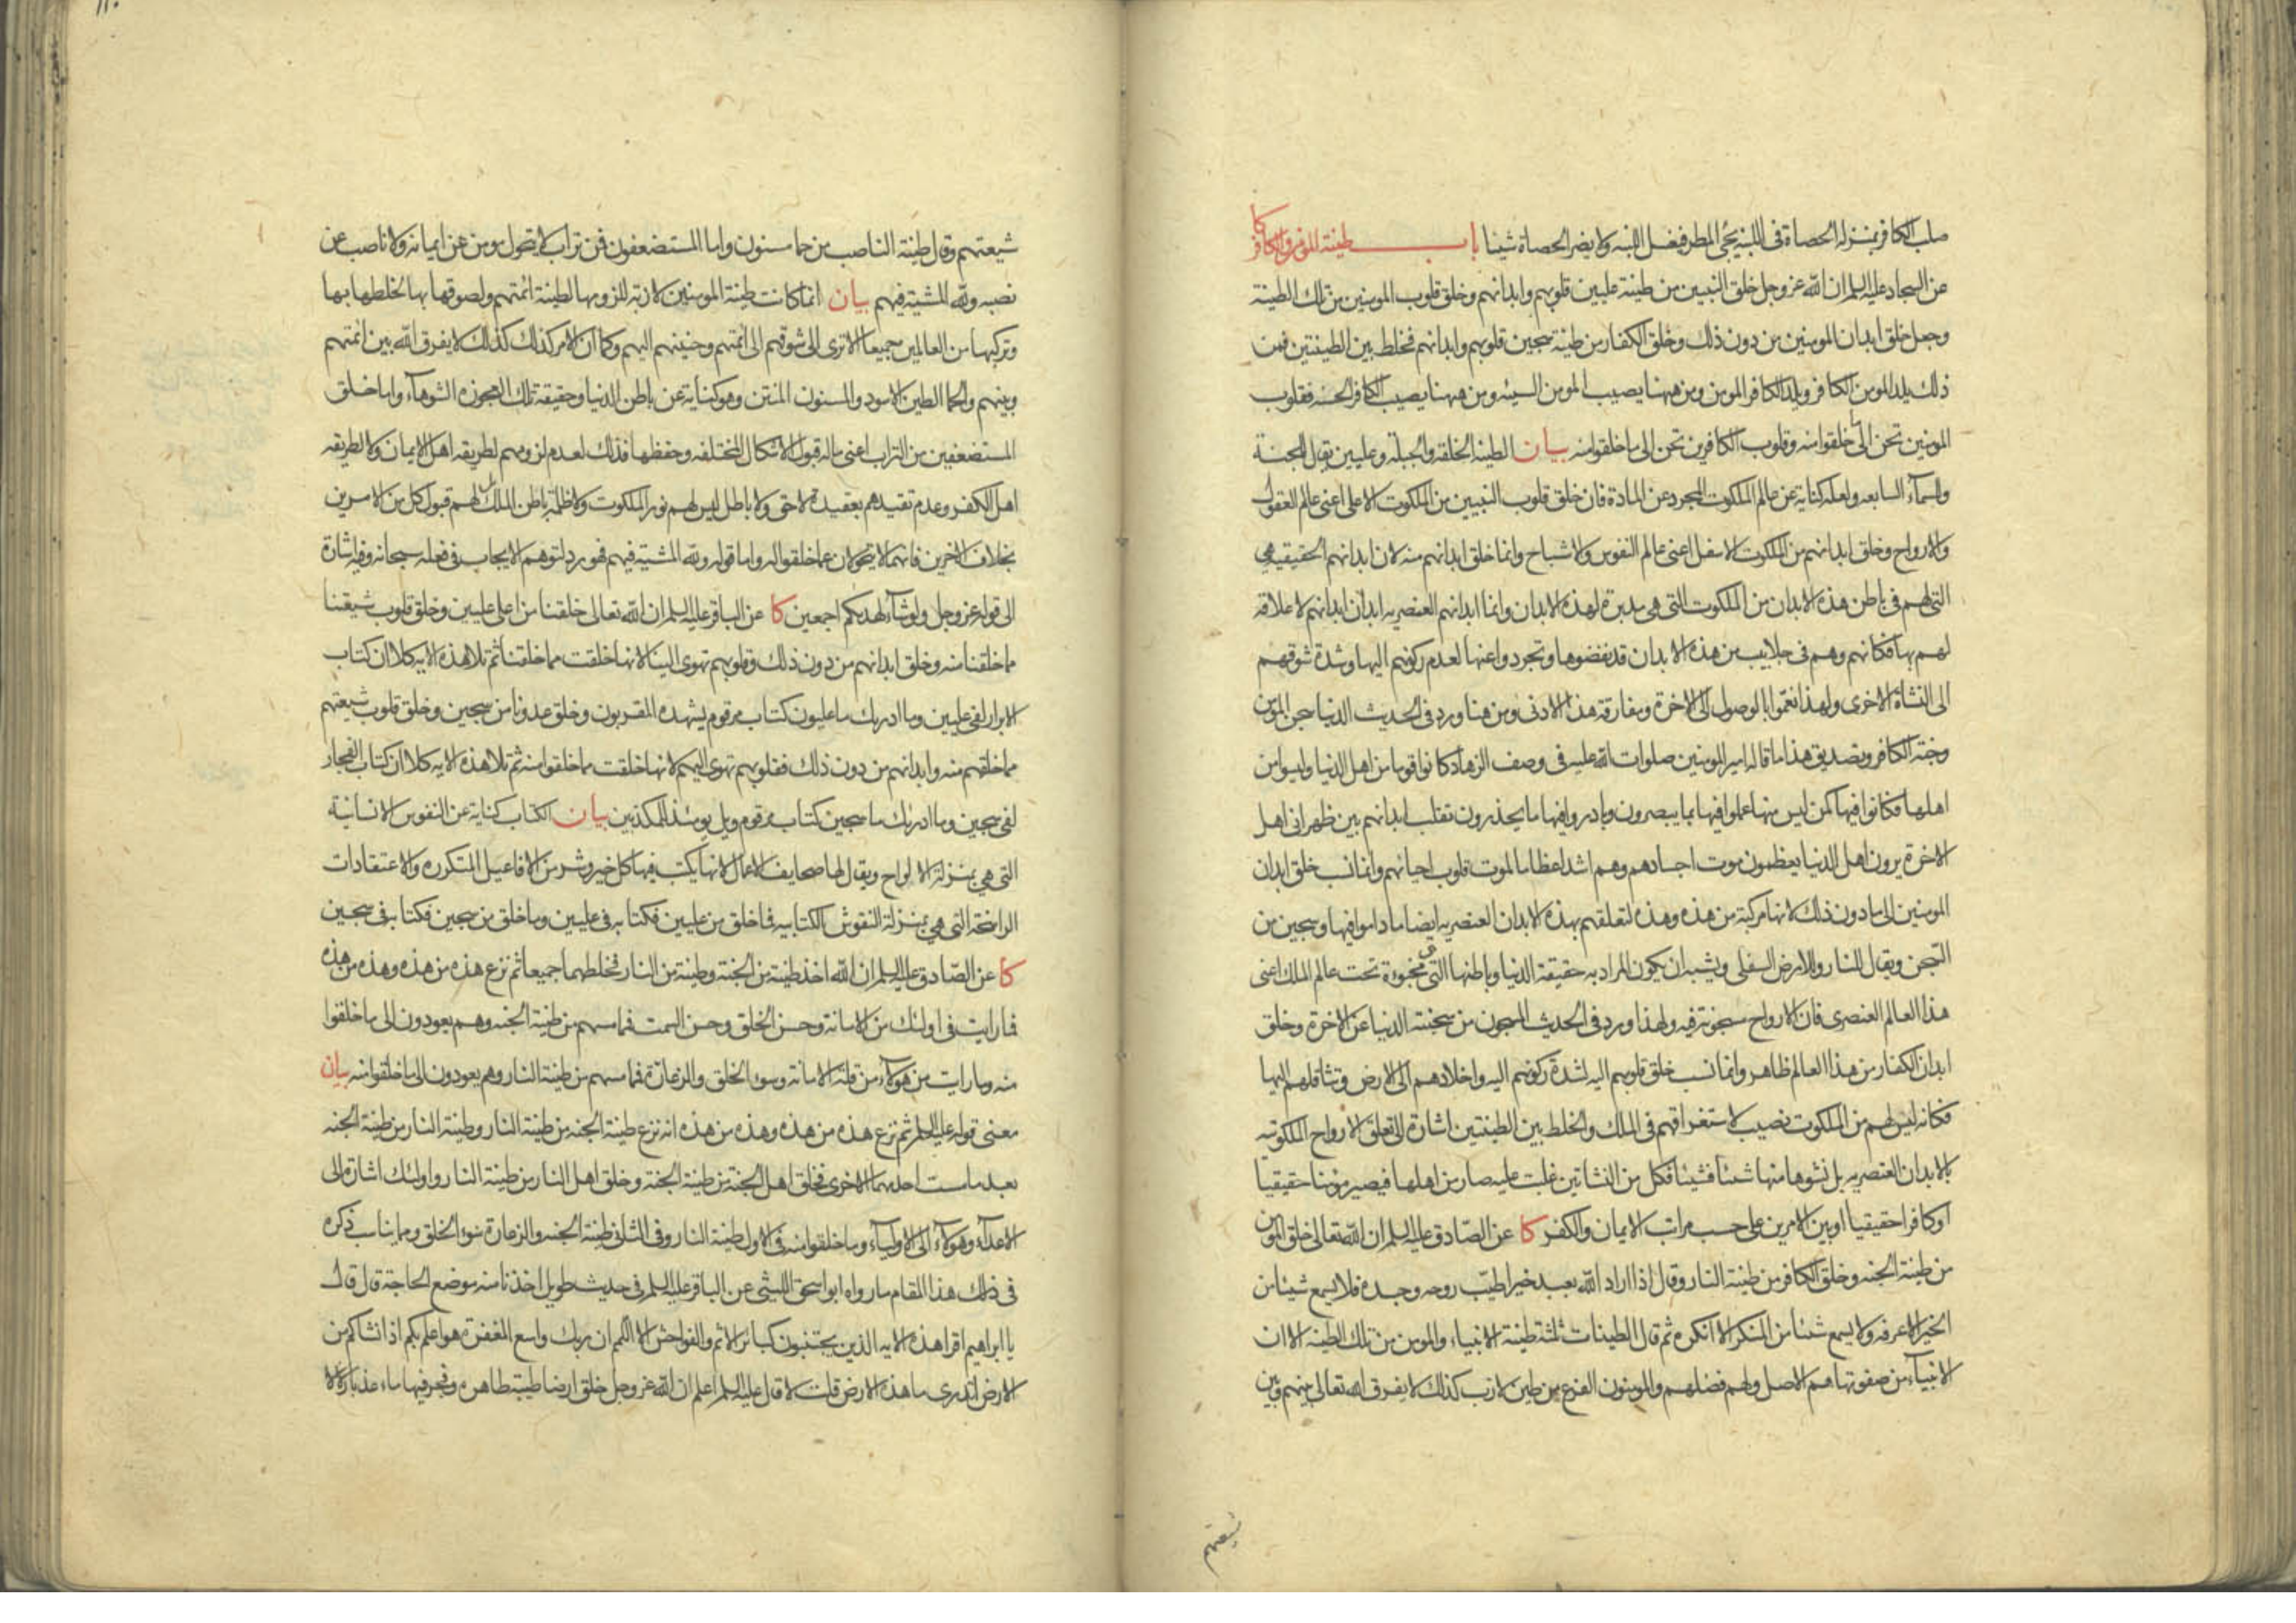 صلب الكافر بمنزلة الحصاة فى اللبنة يجئ المطر فيغسل اللبنة ولا يضر الحصاة شيئا باب طينة المؤمن والكافر كا
عن السجاد عليه السلم ان الله عز وجل خلق النبيين من طينة عليين قلوبهم وابدانهم وخلق قلوب المومنين من تلك الطينة
وجعل خلق ابدان المومنين من دون ذلك وخلق الكفار من طينة سجين قلوبهم وابدانهم فخلط بين الطينتين فمن
ذلك يلد المومن الكافر ويلد الكافر المومن ومن ههنا يصيب المومن السيئه ومن ههنا يصيب الكافر الحسنه فقلوب
المومنين تحن الى ما خلقوا منه وقلوب الكافرين تحن الى ما خلقوا منه بيان الطينه الخلقه والجبلة وعليين يقال للجنة
والسمآء السابعه ولعله كناية عن عالم الملكوت المجرد عن المادة فان خلق قلوب النبيين من الملكوت الاعلى اعنى عالم العقول
والارواح وخلق ابدانهم من الملكوت الاسفل اعنى عالم النفوس والاشباح وانما خلق ابدانهم منه لان ابدانهم الحقيقيه هى
التى لهم فى باطن هذه الابدان من الملكوت التى هى مدبرة لهذه الابدان وانما ابدانهم العنصريه ابدان ابدانهم لا علاقه
لهم بها فكانهم وهم فى جلابيب من هذه الابدان قد نفضوها وتجردوا عنها لعدم ركونهم اليها وشدة شوقهم
الى النشاة الاخرى ولهذا نعموا بالوصول الى الاخرة ومفارقة هذا الادنى ومن هنا ورد فى الحديث الدنيا سجن المومن
وجنة الكافر وتصديق هذا ما قاله امير المومنين صلوات الله عليه فى وصف الزهاد كانوا قوما من اهل الدنيا وليسوا من
اهلها فكانوا فيها كمن ليس منها عملوا فيها بما يبصرون وبادروا فيها ما يحذرون تقلب ابدانهم بين ظهرانى اهل
الاخرة يرون اهل الدنيا يعظمون موت اجسادهم وهم اشد اعظاما لموت قلوب احيائهم وانما نسب خلق ابدان
المومنين الى ما دون ذلك لانها مركبة من هذه وهذه لتعلقهم بهذه الابدان العنصريه ايضا ما داموا فيها وسجين من
السجن ويقال للنار والارض السفلى ويشبه ان يكون المراد به حقيقة الدنيا وباطنها التى هى مخبوءة تحت عالم الملك اعنى
هذا العالم العنصرى فان الارواح مسجونة فيه ولهذا ورد فى الحديث المسجون من سجنته الدنيا عن الاخرة وخلق
ابدان الكفار من هذا العالم ظاهر وانما نسب خلق قلوبهم اليه لشدة ركونهم اليه واخلادهم الى الارض وتثاقلهم اليها
فكانه ليس لهم من الملكوت نصيب لاستغراقهم فى الملك والخلط بين الطينتين اشارة الى تعلق الارواح الملكوتيه
بالابدان العنصريه بل نشوها منها شيئا فشيئا فكل من النشاتين غلبت عليه صار من اهلها فيصير مؤمنا حقيقيا
او كافرا حقيقيا او بين الامرين على حسب مراتب الايمان والكفر كا عن الصادق عليه السلم ان الله تعالى خلق المومن
من طينة الجنه وخلق الكافر من طينة النار وقال اذا اراد الله بعبد خيرا طيب روحه وجسده فلا يسمع شيئا من
الخير الا عرفه ولا يسمع شيئا من المنكر الا انكره ثم قال الطينات ثلثة طينة الانبياء والمومن من تلك الطينه الا ان
الانبيآء من صفوتها هم الاصل ولهم فضلهم والمومنون الفرع من طين لازب كذلك لا يفرق الله تعالى بينهم وبين
شيعتهم
شيعتهم وقال طينة الناصب من حما مسنون واما المستضعفون فمن تراب لا يتحول مومن عن ايمانه ولا ناصب عن
نصبه ولله المشية فيهم بيان انما كانت طينة المومنين لازبة للزومها لطينة ائمتهم ولصوقها بها لخلطها بها
وتركبها من العالمين جميعا الا ترى الى شوقهم الى ائمتهم وحنينهم اليهم وكما ان الامر كذلك كذلك لا يفرق الله بين ائمتهم
وبينهم والحما الطين الاسود والمسنون المنتن وهو كناية عن باطن الدنيا وحقيقة تلك العجوزه الشوهآء واما خلق
المستضعفين من التراب اعنى ماله قبول الاشكال المختلفه وحفظها فذلك لعدم لزومهم لطريقه اهل الايمان ولا لطريقه
اهل الكفر وعدم تقيدهم بعقيدة لا حق ولا باطل ليس لهم نور الملكوت ولا ظلمة باطن الملك بل لهم قبول كل من الامرين
بخلاف الاخرين فانهما لا يتحولان عما خلقوا له واما قوله ولله المشية فيهم فهو رد لتوهم الايجاب فى فعله سبحانه وفيه اشارة
الى قوله عز وجل ولو شآء لهديكم اجمعين كا عن الباقر عليه السلم ان الله تعالى خلقنا من اعلى عليين وخلق قلوب شيعتنا
مما خلقنا منه وخلق ابدانهم من دون ذلك وقلوبهم تهوى الينا لانها خلقت مما خلقنا ثم تلا هذه الايه كلا ان كتاب
الابرار لفى عليين وما ادريك ما عليون كتاب مرقوم يشهده المقربون وخلق عدونا من سجين وخلق قلوب شيعتهم
مما خلقهم منه وابدانهم من دون ذلك فقلوبهم تهوى اليهم لانها خلقت مما خلقوا منه ثم تلا هذه الايه كلا ان كتاب الفجار
لفى سجين وما ادريك ما سجين كتاب مرقوم ويل يومئذ للمكذبين بيان الكتاب كناية عن النفوس الانسانية
التى هى بمنزلة الالواح ويقال لها صحايف الاعمال لانها يكتب فيها كل خير وشر من الافاعيل المتكرره والاعتقادات
الراسخة التى هى بمنزلة النقوش الكتابيه فما خلق من عليين فكتابه فى عليين وما خلق من سجين فكتابه فى سجين
كا عن الصادق عليه السلم ان الله اخذ طينة من الجنة وطينة من النار فخلطهما جميعا ثم نزع هذه من هذه وهذه من هذه
فما رايت فى اولئك من الامانة وحسن الخلق وحسن السمت فمما مسهم من طينة الجنه وهم يعودون الى ما خلقوا
منه وما رايت من هولآء من قلة الامانه وسوء الخلق والزعارة فمما مسهم من طينة النار وهم يعودون الى ما خلقوا منه بيان
معنى قوله عليه السلم ثم نزع هذه من هذه وهذه من هذه انه نزع طينة الجنه من طينة النار وطينة النار من طينة الجنه
بعد ما مست احديهما الاخرى فخلق اهل الجنة من طينة الجنة وخلق اهل النار من طينة النار واولئك اشارة الى
الاعدآء وهولآء الى الاوليآء وما خلقوا منه فى الاول طينة النار وفى الثانى طينة الجنه والزعارة سوء الخلق ومما يناسب ذكره
فى ذلك هذا المقام ما رواه ابو اسحق الليثى عن الباقر عليه السلم فى حديث طويل اخذنا منه موضع الحاجة قال قال
يا ابراهيم اقرا هذه الايه الذين يجتنبون كبائر الاثم والفواحش الا اللمم ان ربك واسع المغفرة هو اعلم بكم اذ انشاكم من
الارض اتدرى ما هذه الارض قلت لا قال عليه السلم اعلم ان الله عز وجل خلق ارضا طيبة طاهره وفجر فيها ماء عذبا زلالا